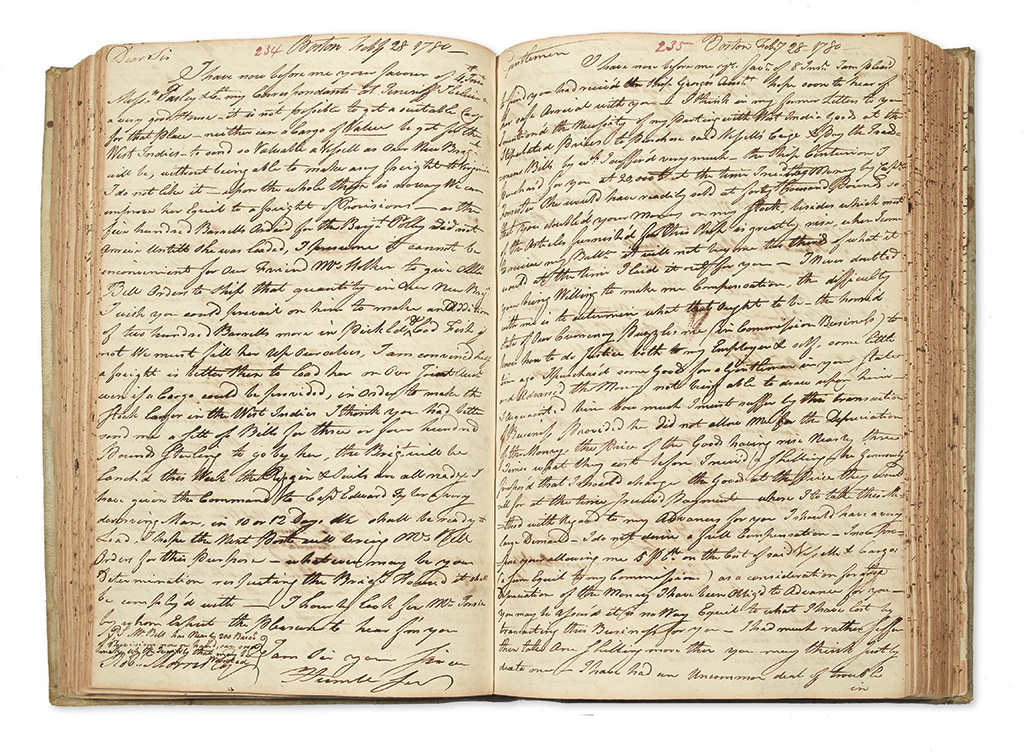 234 Boston Feby 28 1780
Dear Sir
I have now before me your favour of
my Correspondents at Teneriff I believe is
a very good House — it is not possible to get a suitable Cargo
for that Place — neither can a Cargo of Value be got for the
West Indies — to send so Valuable a Vessell as Our New Brigt
will be, without being able to make any freight to Virginia
I do not like it — upon the whole there is no way We can
improve her Equil to a freight of Provisions — as the
five hundred Barrells for the Brigt Polly did not
Arrive Untill she was Loaded, I presume it cannot be
inconvenient for Our Friend Mr Holker to give Mr
Bell Orders to Ship that quantity in Our New Brigt
I wish you could prevail on him to make an Addition
of two hundred Barrells more in Pickled Cod Fish if
not We must fill her up Ourselves, I am convinced
a freight is better then to Load her on Our
even if a Cargo could be provided, in Order to make the
Stock Larger in the West Indies I think you had better
send me a sett of Bills for three or four hundred
Pounds Sterling to go by her, the Brigt will be
Lanch'd this Week the Rigger & Sails are all ready I
have given the Command to Capt Edward a very
deserving Man, in 10 or 12 Days We shall be ready to
Load. I hope the Next Post will bring Mr Bell
Orders for this Purpose — whatever may be your
Determination respecting the Brigt it shall
be comply'd with — I hourly look for Mr
by whom Expect the Pleasure to hear from you
PS Mr Bell has Nearly 200 Barrs
of Provisions now on hand
I am Sir your Sincere
Humble Ser
Morris
235 Boston Feby 28 1780
Gentlemen
I have now before me yr favr of 8 Inst I am pleased
to find you had receivd the Ship Georges Accot I hope soon to hear of
her safe Arrival with you — I think in my former Letter to you
mentiond the Necessity of my Parting with West India Good at the
Stipulated Prices to Purchase said Vessells Cargo & Pay the Trades
mens Bills by wch I sufferd very much — the Ship Centurion I
Purchasd for you at at the time I recd the Money by Capt
She would have readily sold at forty thousand Pounds so
that you doubled your Money on my Stock, besides which most
of the Articles furnished for this Ship is greatly risen, when I come
to receive my Ballce it will not buy one third of what it
would at the time I laid it out for you — I Never doubted
your being Willing to make me Compensation, the difficulty
with me is to determine what that ought to be — the horrid
State of Our Currency Puzzels me (in Commission Business) to
know how to do Justice both to my Employers & self, some little
time ago I purchasd some Good for a Gentleman in your State
and Advancd the Money not being able to draw when
I acquaintd him how much I must suffer by this transaction
of Business Provided he did not allow Me for the Depreciation
of the Money, the Price of the Good having rose Nearly three
times what they cost before I recivd a Shilling, he Generously
proposd that I should charge the Good at the Price they would
sell for at the time I recivd Payment — where I to take this Me-
thod with Regard to my Advances for you I should have a very
large Demand — I do not desire a full Compensation — I
your allowing me 5 P Ct on the Cost of said Vessells & Cargoes
(a Sum Equil to my Commissions) as a consideration for the
Depreciation of the Money I have been Obligd to Advance for you —
you may be Assur'd it is no Way Equil to what I have lost by
transacting this Business for you — I had much rather suffer
then take One Shilling more then you may think justly
due to me — I have had an Uncommon deal of trouble
in